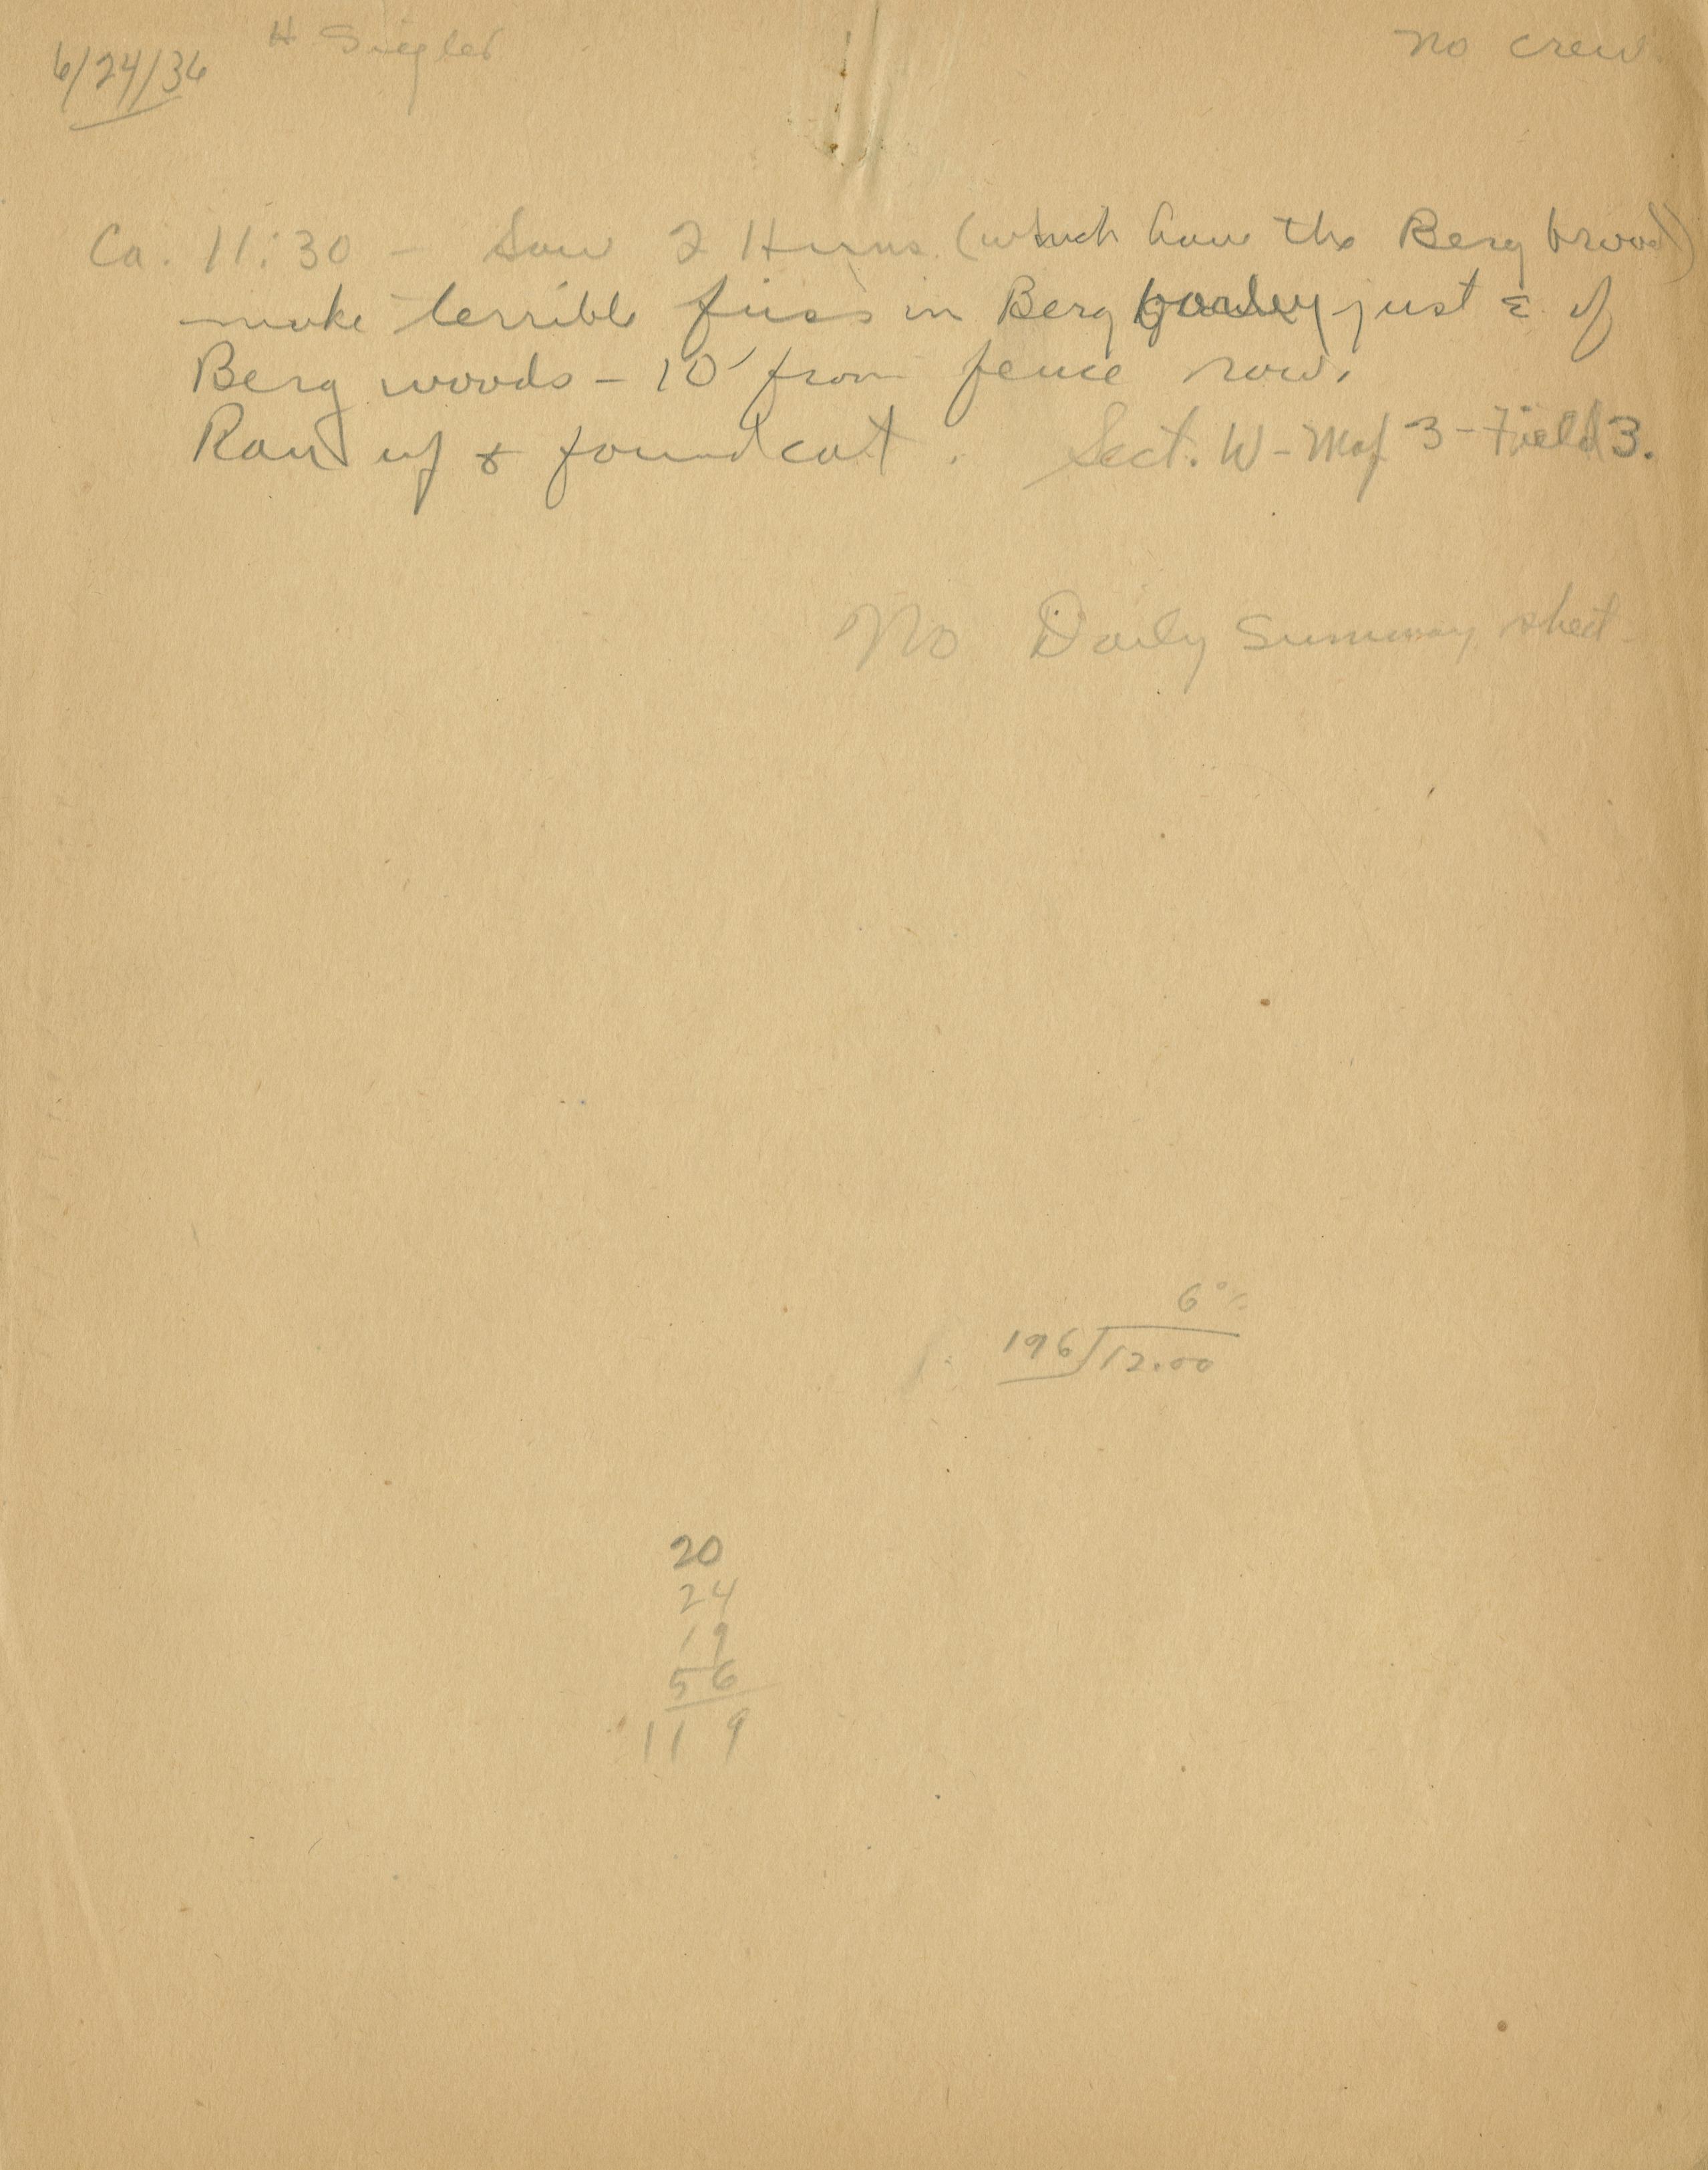 6/24/36 H Siegler No crew
Ca. 11:30 - Saw 2 Huns (which have the Berg brood)
make terrible fuss in Berg barley just E. of
Berg woods - 10' from fence row.
Ran up & found cat. Sect. W - Map 3 - Field 3.
No Daily Summary sheet
6%
196 12.00
20
24
19
56
119